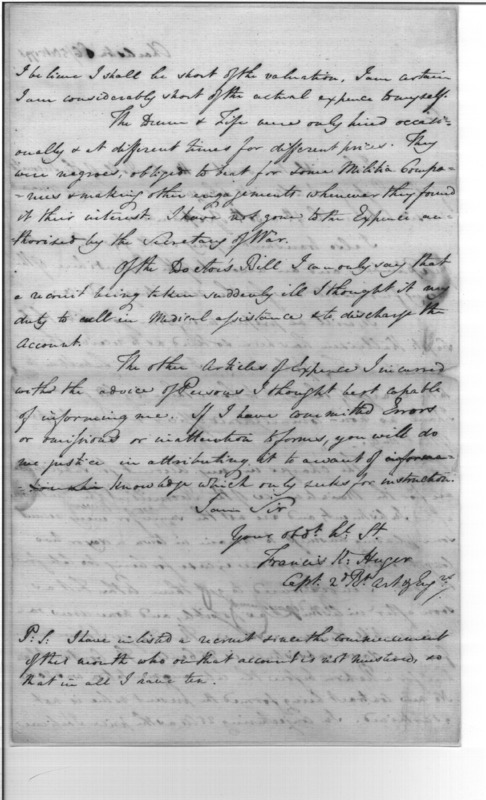 I believe I shall be short of the valuation, I am certain
I am considerably short of the actual expence to myself.
The Drum & Fife were only hired occasi-
onally & at different times for different prices. They
were negroes, obliged to beat for some Militia Compa-
-nies & making other engagements whenever they found
it their interest. I have not gone to the Expence au-
thorised by the Secretary of War.
Of the Doctor's Bill I can only say that
a recruit being taken suddenly ill I thought it my
duty to call in Medical assistance & to discharge the
account.
The other Articles of Expence I incurred
with the advice of Persons I thought best capable
of informing me. If I have committed Errors
or omissions or inattention to forms, you will do
me justice in attributing it to a want of
knowledge which only seeks for instruction.
I am Sir
Your obdt. hl. St.
Francis K. Huger
Capt. 2d Rt. Art & Engrs.
P: S: I have inlisted a recruit since the commencement
of this month who on that account is not mustered, so
that in all I have ten.